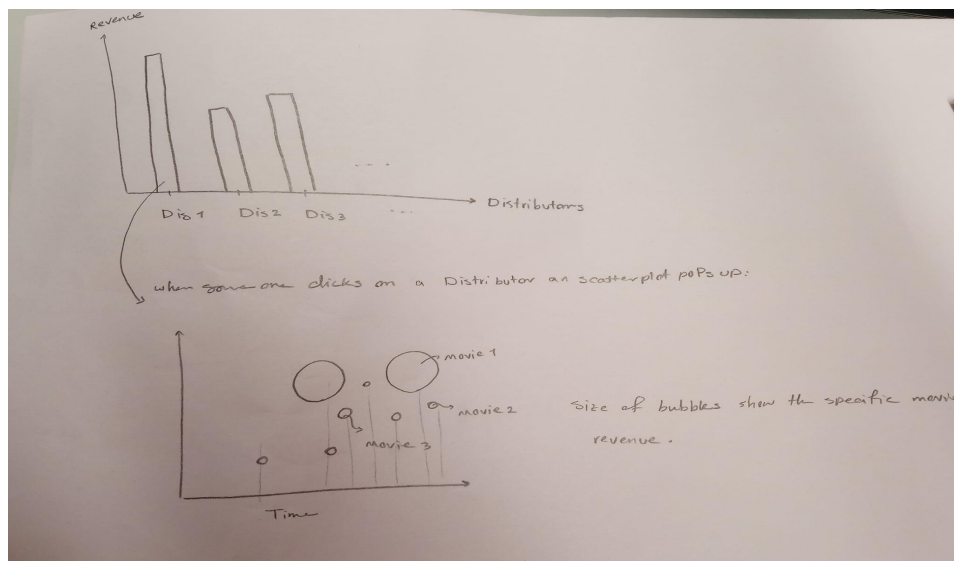 Revenue
Dis 1 Dis 2 Dis 3 ...
Distributors
when some one clicks on a Distributor an scatterplot pops up:
movie 1
movie 2
movie 3
size of bubbles show the specific movie
revenue.
Time